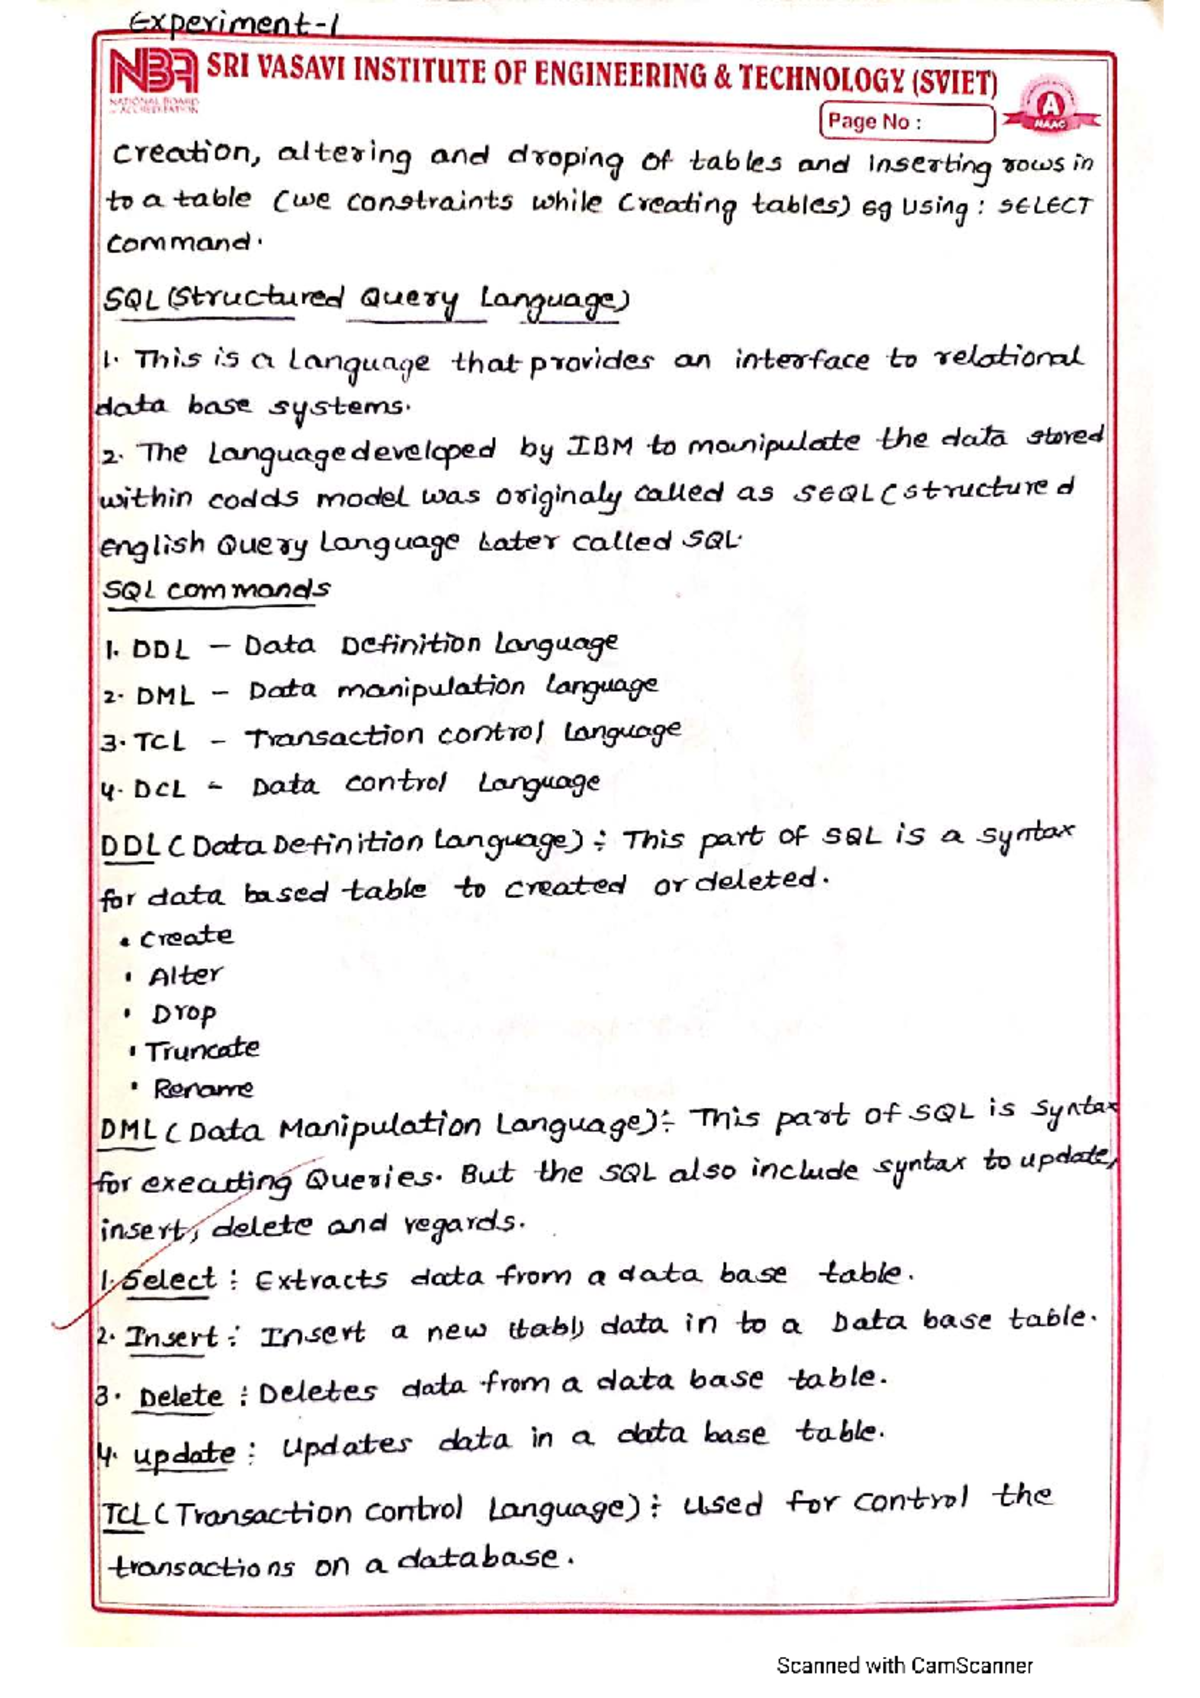 Experiment-1
NBA SRI VASAVI INSTITUTE OF ENGINEERING & TECHNOLOGY (SVIET)
NATIONAL BOARD
of ACCREDITATION
A
NAAC
Page No :
Creation, altering and droping of tables and Inserting rows in
to a table (we constraints while Creating tables) Eg Using : SELECT
Command.
SQL (Structured Query Language)
1. This is a Language that provides an interface to relational
data base systems.
2. The Language developed by IBM to manipulate the data stored
within codds model was originaly called as SEQL (structured
english Query Language Later called SQL.
SQL commands
1. DDL - Data Definition Language
2. DML - Data manipulation Language
3. TCL - Transaction control Language
4. DCL - Data control Language
DDL (Data Definition Language) : This part of SQL is a Syntax
for data based table to created or deleted.
• Create
• Alter
• Drop
• Truncate
• Rename
DML (Data Manipulation Language) : This part of SQL is Syntax
for executing Queries. But the SQL also include syntax to update,
insert, delete and regards.
1. Select : Extracts data from a data base table.
2. Insert : Insert a new data in to a Data base table.
3. Delete : Deletes data from a data base table.
4. update : Updates data in a data base table.
TCL (Transaction Control Language) : Used for control the
transactions on a database.
Scanned with CamScanner